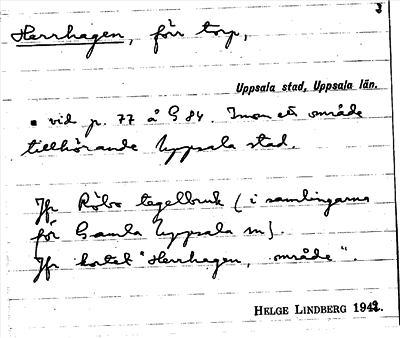 3
Herrhagen, förr torp,
Uppsala stad, Uppsala län.
• vid p. 77 å G 84. Inom ett område
tillhörande Uppsala stad.
Jfr Röbo tegelbruk (i samlingarna
för Gamla Uppsala sn).
Jfr kortet "Herrhagen, område".
HELGE LINDBERG 1942.